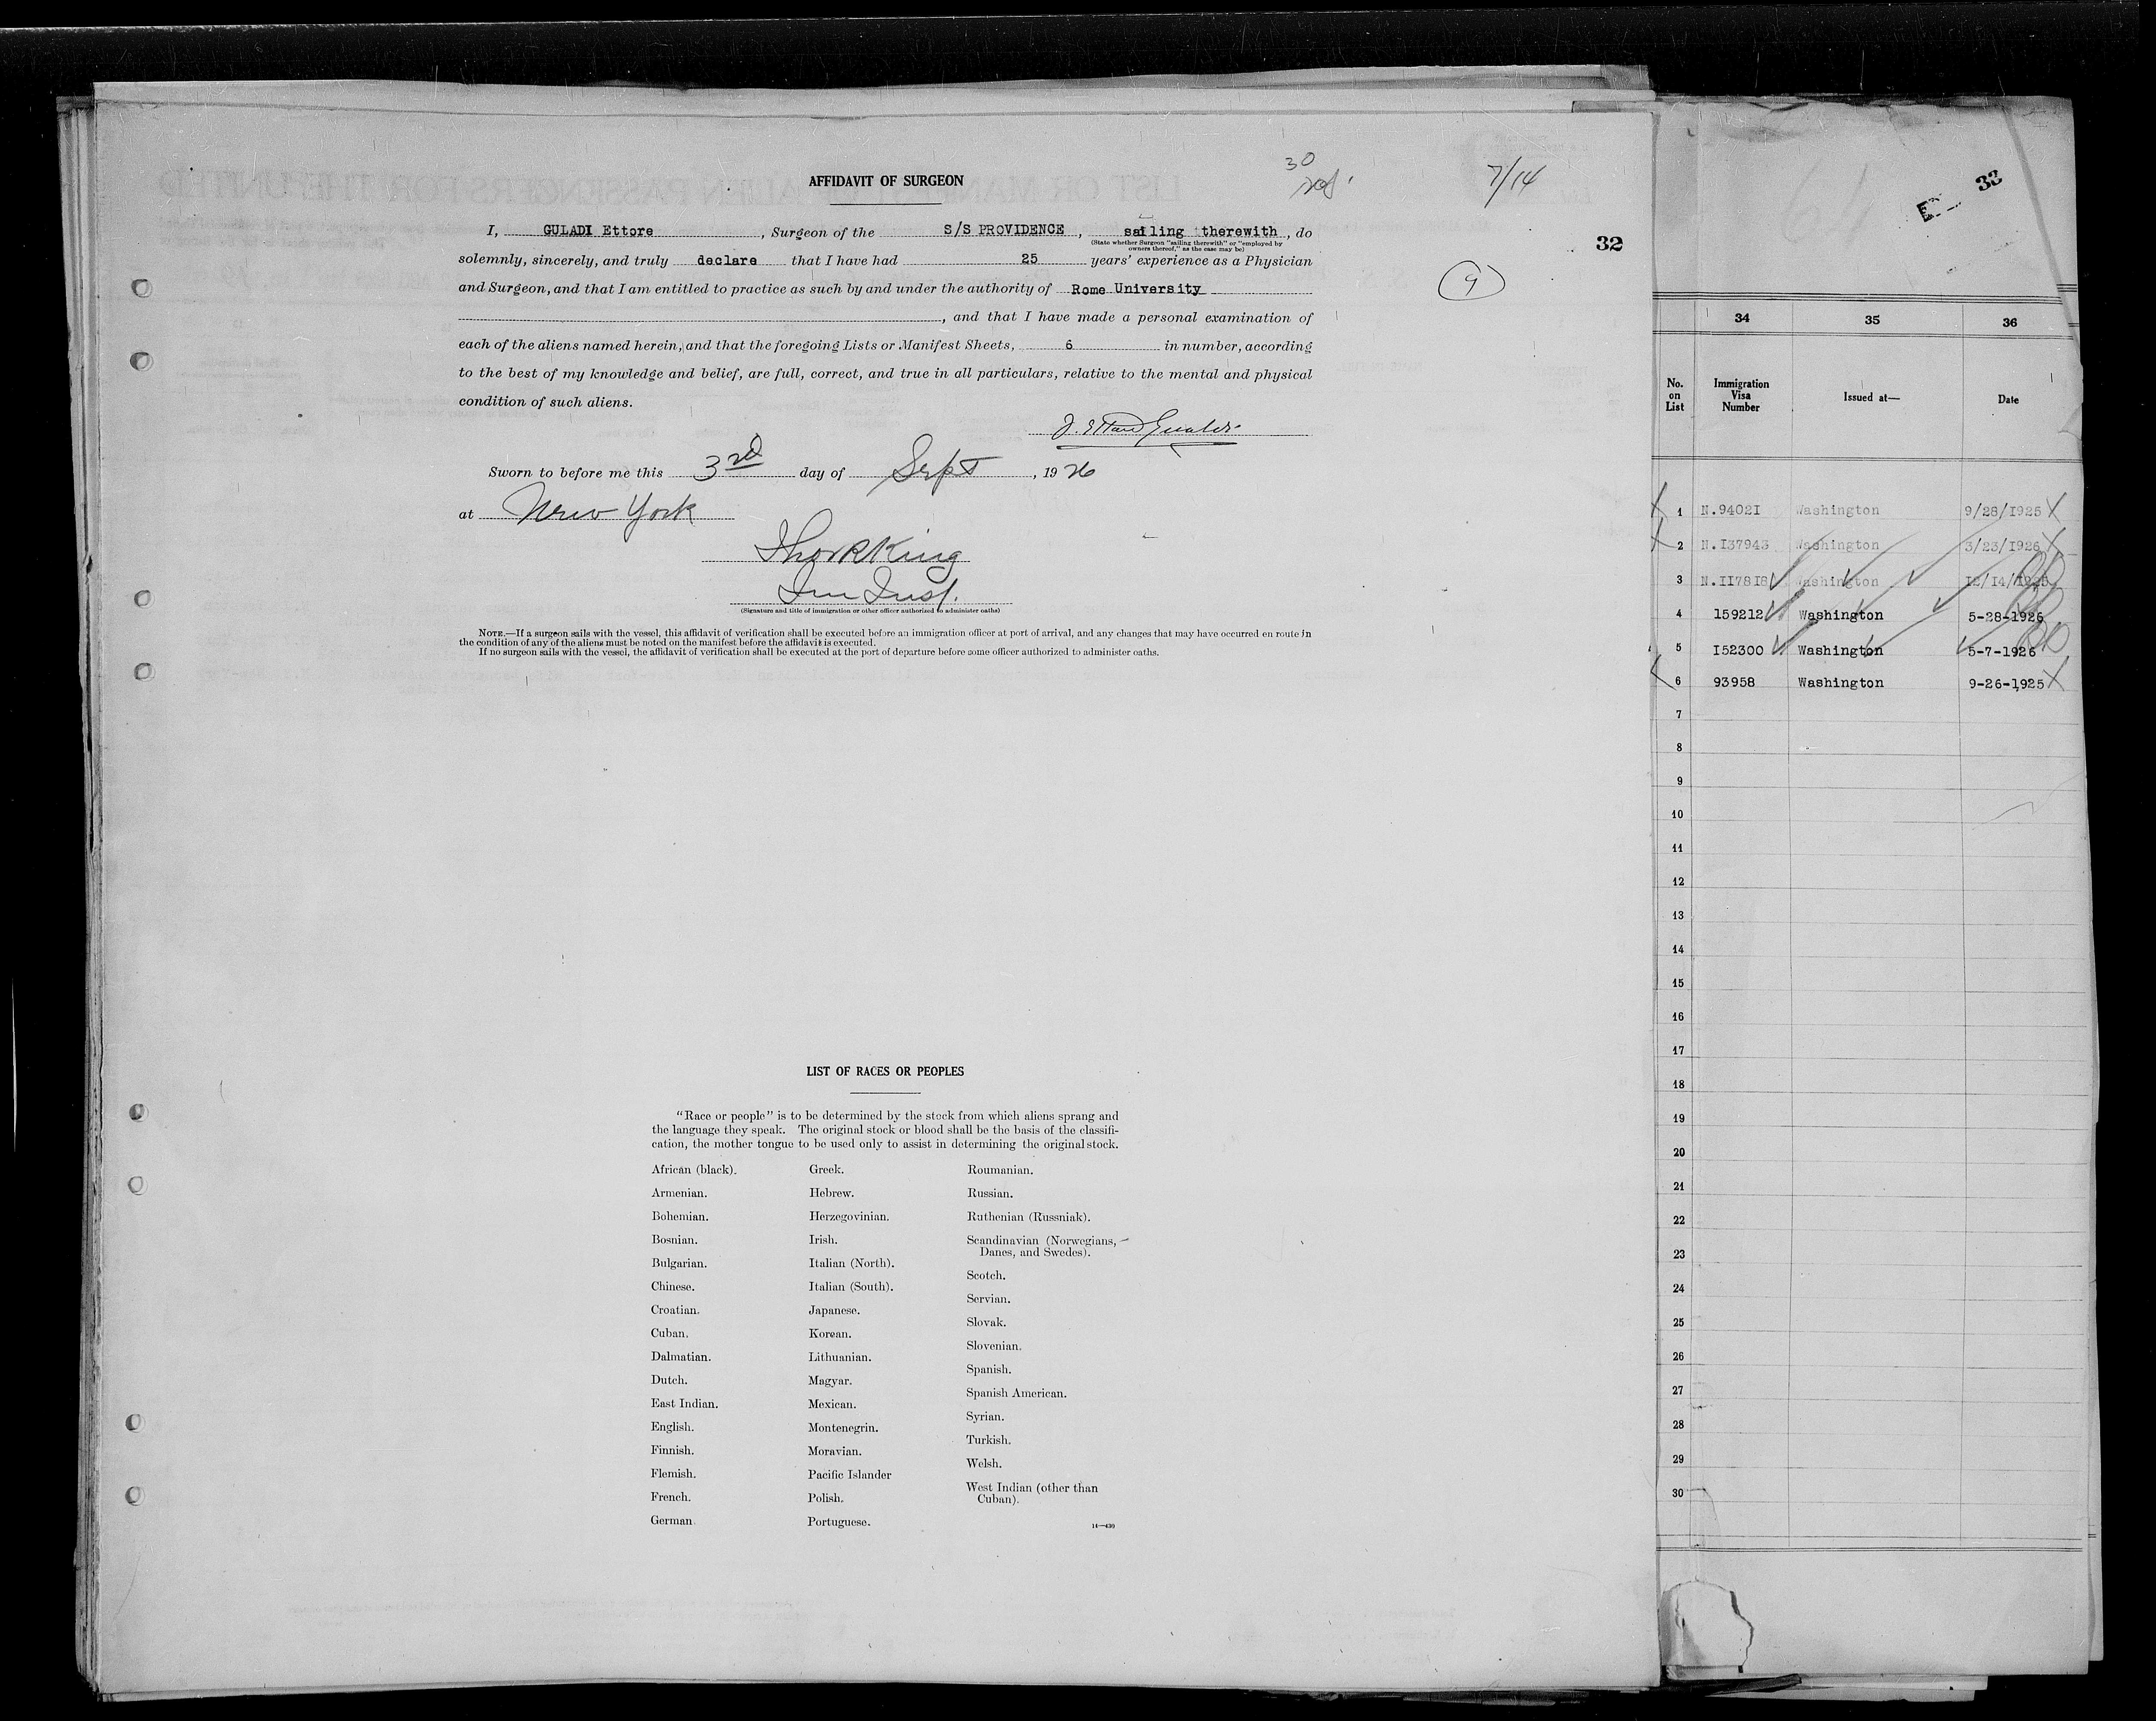 AFFIDAVIT OF SURGEON
30
7/14
I, GULADI Ettore, Surgeon of the S/S PROVIDENCE, sailing therewith, do
(State whether Surgeon "sailing therewith" or "employed by
owners thereof," as the case may be)
32
solemnly, sincerely, and truly declare that I have had 25 years' experience as a Physician
and Surgeon, and that I am entitled to practice as such by and under the authority of Rome University
9
, and that I have made a personal examination of
each of the aliens named herein, and that the foregoing Lists or Manifest Sheets, 6 in number, according
to the best of my knowledge and belief, are full, correct, and true in all particulars, relative to the mental and physical
condition of such aliens.
Sworn to before me this 3rd day of Sept, 1926
at New York
Thor R King
Imm Insp.
(Signature and title of immigration or other officer authorized to administer oaths)
NOTE.—If a surgeon sails with the vessel, this affidavit of verification shall be executed before an immigration officer at port of arrival, and any changes that may have occurred en route in
the condition of any of the aliens must be noted on the manifest before the affidavit is executed.
If no surgeon sails with the vessel, the affidavit of verification shall be executed at the port of departure before some officer authorized to administer oaths.
LIST OF RACES OR PEOPLES
"Race or people" is to be determined by the stock from which aliens sprang and
the language they speak. The original stock or blood shall be the basis of the classifi-
cation, the mother tongue to be used only to assist in determining the original stock.
African (black).
Armenian.
Bohemian.
Bosnian.
Bulgarian.
Chinese.
Croatian.
Cuban.
Dalmatian.
Dutch.
East Indian.
English.
Finnish.
Flemish.
French.
German
Greek.
Hebrew.
Herzegovinian.
Irish.
Italian (North).
Italian (South).
Japanese.
Korean.
Lithuanian.
Magyar.
Mexican.
Montenegrin.
Moravian.
Pacific Islander
Polish.
Portuguese.
Roumanian.
Russian.
Ruthenian (Russniak).
Scandinavian (Norwegians,
Danes, and Swedes).
Scotch.
Servian.
Slovak.
Slovenian.
Spanish.
Spanish American.
Syrian.
Turkish.
Welsh.
West Indian (other than
Cuban).
14—430
33
34 35 36
No. on List Immigration Visa Number Issued at— Date
1 N.94021 Washington 9/28/1925
2 N.I37943 Washington 3/23/1926
3 N.II78I8 Washington I2/I4/1925
4 159212 Washington 5-28-1926
5 I52300 Washington 5-7-1926
6 93958 Washington 9-26-1925
7
8
9
10
11
12
13
14
15
16
17
18
19
20
21
22
23
24
25
26
27
28
29
30